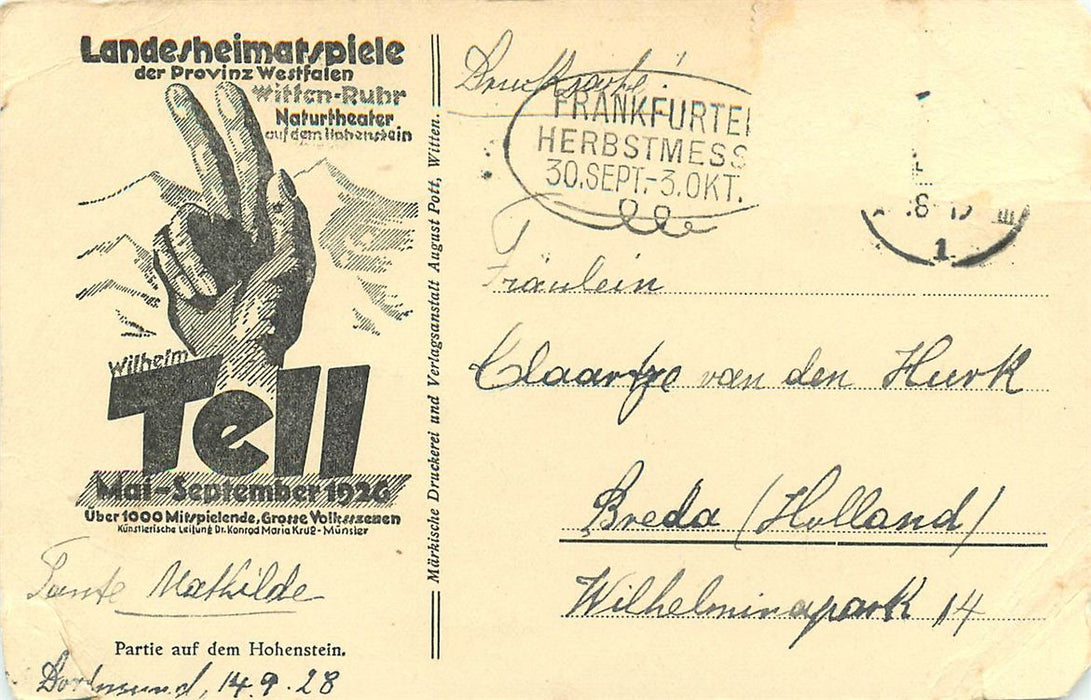 Landesheimatspiele
der Provinz Westfalen
Witten-Ruhr
Naturtheater
auf dem Hohenstein
Wilhelm
Tell
Mai-September 1926
Über 1000 Mitspielende, Grosse Volksszenen
Künstlerische Leitung Dr. Konrad Maria Kruß - Münster
Tante Mathilde
Partie auf dem Hohenstein.
Dortmund, 14.9.28
Märkische Druckerei und Verlagsanstalt August Pott, Witten.
Drucksache!
FRANKFURTE
HERBSTMESS
30.SEPT.-3.OKT.
1
Fräulein
Claartje van den Hurk
Breda (Holland)
Wilhelminapark 14